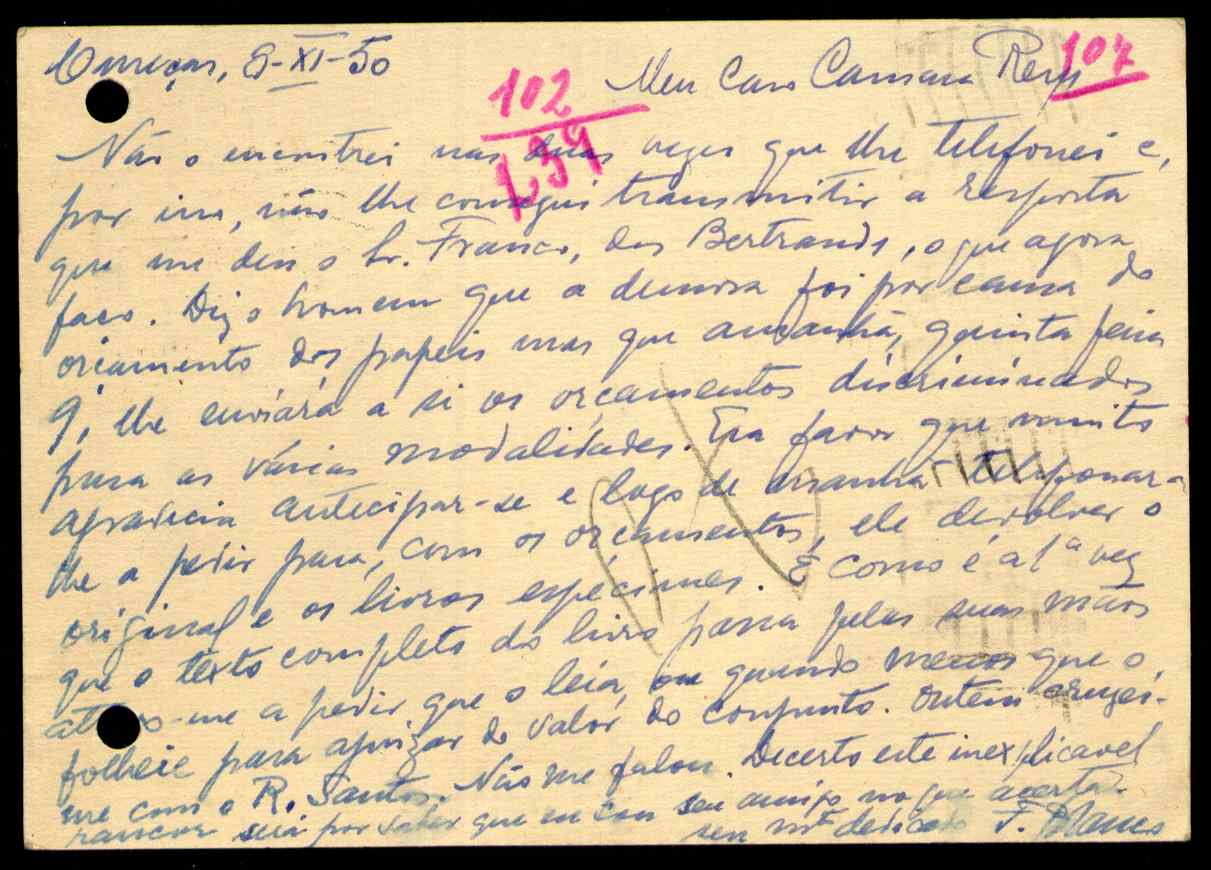 8-XI-50
102
107
Meu Caro Camara Reys
139
Não o encontrei nas duas vezes que lhe telefonei e,
por isso, não lhe consegui transmitir a resposta
que me deu o Sr. Franco, dos Bertrands, o que agora
faço. Diz o homem que a demora foi por causa do
orçamento dos papeis mas que amanhã, quinta feira
9, lhe enviará a si os orçamentos discriminados
para as várias modalidades. Era favor que muito
agradecia antecipar-se e logo de manhã telefonar-
lhe a pedir para, com os orçamentos, ele devolver o
original e os livros especimes. E como é a 1ª vez
que o texto completo do livro passa pelas suas mãos
atrevo-me a pedir que o leia, ou quando menos que o
folheie para ajuizar do valor do conjunto. Ontem cruzei-
me com o R. Santos. Não me falou. Decerto este inexplicavel
rancor será por saber que eu sou seu amigo no que acerta.
seu mto dedicado F.